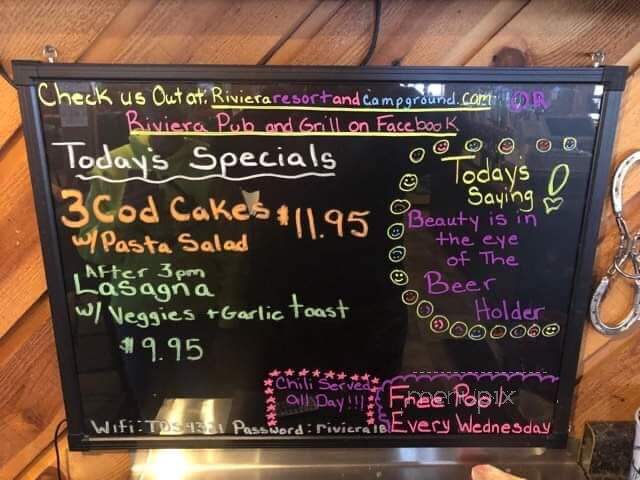 Check us Out at: Rivieraresortandcampground.com OR
Riviera Pub and Grill on Facebook
Today's Specials
3 Cod Cakes $11.95
w/ Pasta Salad
After 3pm
Lasagna
w/ Veggies + Garlic toast
$9.95
Today's
Saying!
Beauty is in
the eye
of The
Beer
Holder
Chili Served
All Day!!!
Free Pool
Every Wednesday
menupix
Wifi: Password: